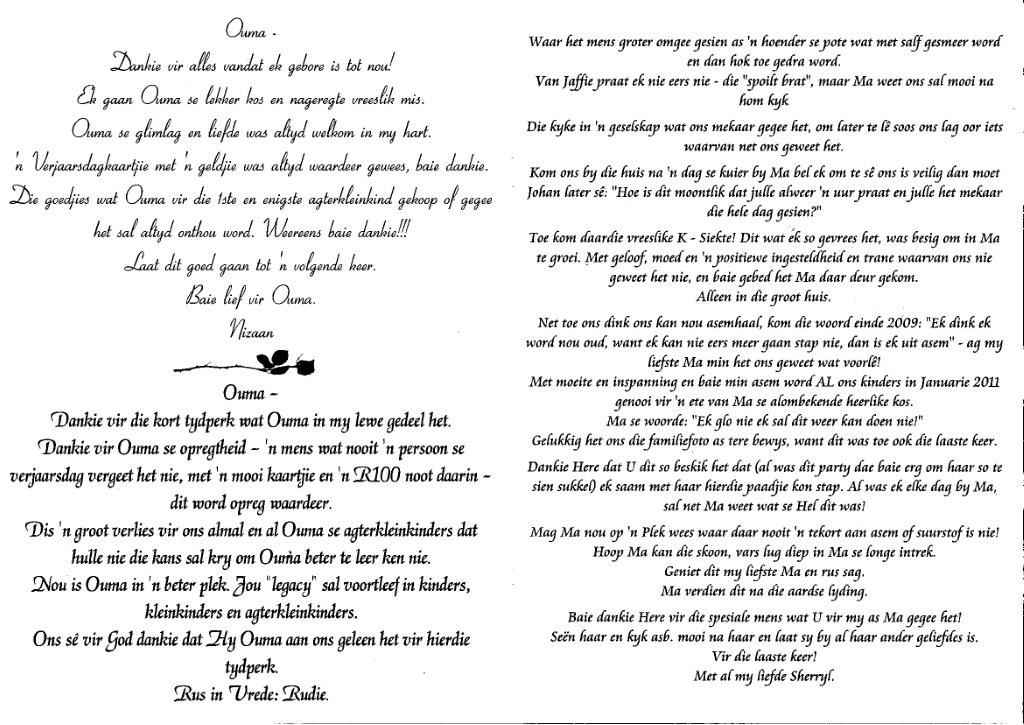 Ouma -
Dankie vir alles vandat ek gebore is tot nou!
Ek gaan Ouma se lekker kos en nageregte vreeslik mis.
Ouma se glimlag en liefde was altyd welkom in my hart.
'n Verjaarsdagkaartjie met 'n geldjie was altyd waardeer gewees, baie dankie.
Die goedjies wat Ouma vir die 1ste en enigste agterkleinkind gekoop of gegee
het sal altyd onthou word. Weereens baie dankie!!!
Laat dit goed gaan tot 'n volgende keer.
Baie lief vir Ouma.
Nizaan
Ouma –
Dankie vir die kort tydperk wat Ouma in my lewe gedeel het.
Dankie vir Ouma se opregtheid – 'n mens wat nooit 'n persoon se
verjaarsdag vergeet het nie, met 'n mooi kaartjie en 'n R100 noot daarin –
dit word opreg waardeer.
Dis 'n groot verlies vir ons almal en al Ouma se agterkleinkinders dat
hulle nie die kans sal kry om Ouma beter te leer ken nie.
Nou is Ouma in 'n beter plek. Jou "legacy" sal voortleef in kinders,
kleinkinders en agterkleinkinders.
Ons sê vir God dankie dat Hy Ouma aan ons geleen het vir hierdie
tydperk.
Rus in Vrede: Rudie.
Waar het mens groter omgee gesien as 'n hoender se pote wat met salf gesmeer word
en dan hok toe gedra word.
Van Jaffie praat ek nie eers nie - die "spoilt brat", maar Ma weet ons sal mooi na
hom kyk
Die kyke in 'n geselskap wat ons mekaar gegee het, om later te lê soos ons lag oor iets
waarvan net ons geweet het.
Kom ons by die huis na 'n dag se kuier by Ma bel ek om te sê ons is veilig dan moet
Johan later sê: "Hoe is dit moontlik dat julle alweer 'n uur praat en julle het mekaar
die hele dag gesien?"
Toe kom daardie vreeslike K - Siekte! Dit wat ék so gevrees het, was besig om in Ma
te groei. Met geloof, moed en 'n positiewe ingesteldheid en trane waarvan ons nie
geweet het nie, en baie gebed het Ma daar deur gekom.
Alleen in die groot huis.
Net toe ons dink ons kan nou asemhaal, kom die woord einde 2009: "Ek dink ek
word nou oud, want ek kan nie eers meer gaan stap nie, dan is ek uit asem" - ag my
liefste Ma min het ons geweet wat voorlê!
Met moeite en inspanning en baie min asem word AL ons kinders in Januarie 2011
genooi vir 'n ete van Ma se alombekende heerlike kos.
Ma se woorde: "Ek glo nie ek sal dit weer kan doen nie!"
Gelukkig het ons die familiefoto as tere bewys, want dit was toe ook die laaste keer.
Dankie Here dat U dit so beskik het dat (al was dit party dae baie erg om haar so te
sien sukkel) ek saam met haar hierdie paadjie kon stap. Al was ek elke dag by Ma,
sal net Ma weet wat se Hel dit was!
Mag Ma nou op 'n Plek wees waar daar nooit 'n tekort aan asem of suurstof is nie!
Hoop Ma kan die skoon, vars lug diep in Ma se longe intrek.
Geniet dit my liefste Ma en rus sag.
Ma verdien dit na die aardse lyding.
Baie dankie Here vir die spesiale mens wat U vir my as Ma gegee het!
Seën haar en kyk asb. mooi na haar en laat sy by al haar ander geliefdes is.
Vir die laaste keer!
Met al my liefde Sherryl.